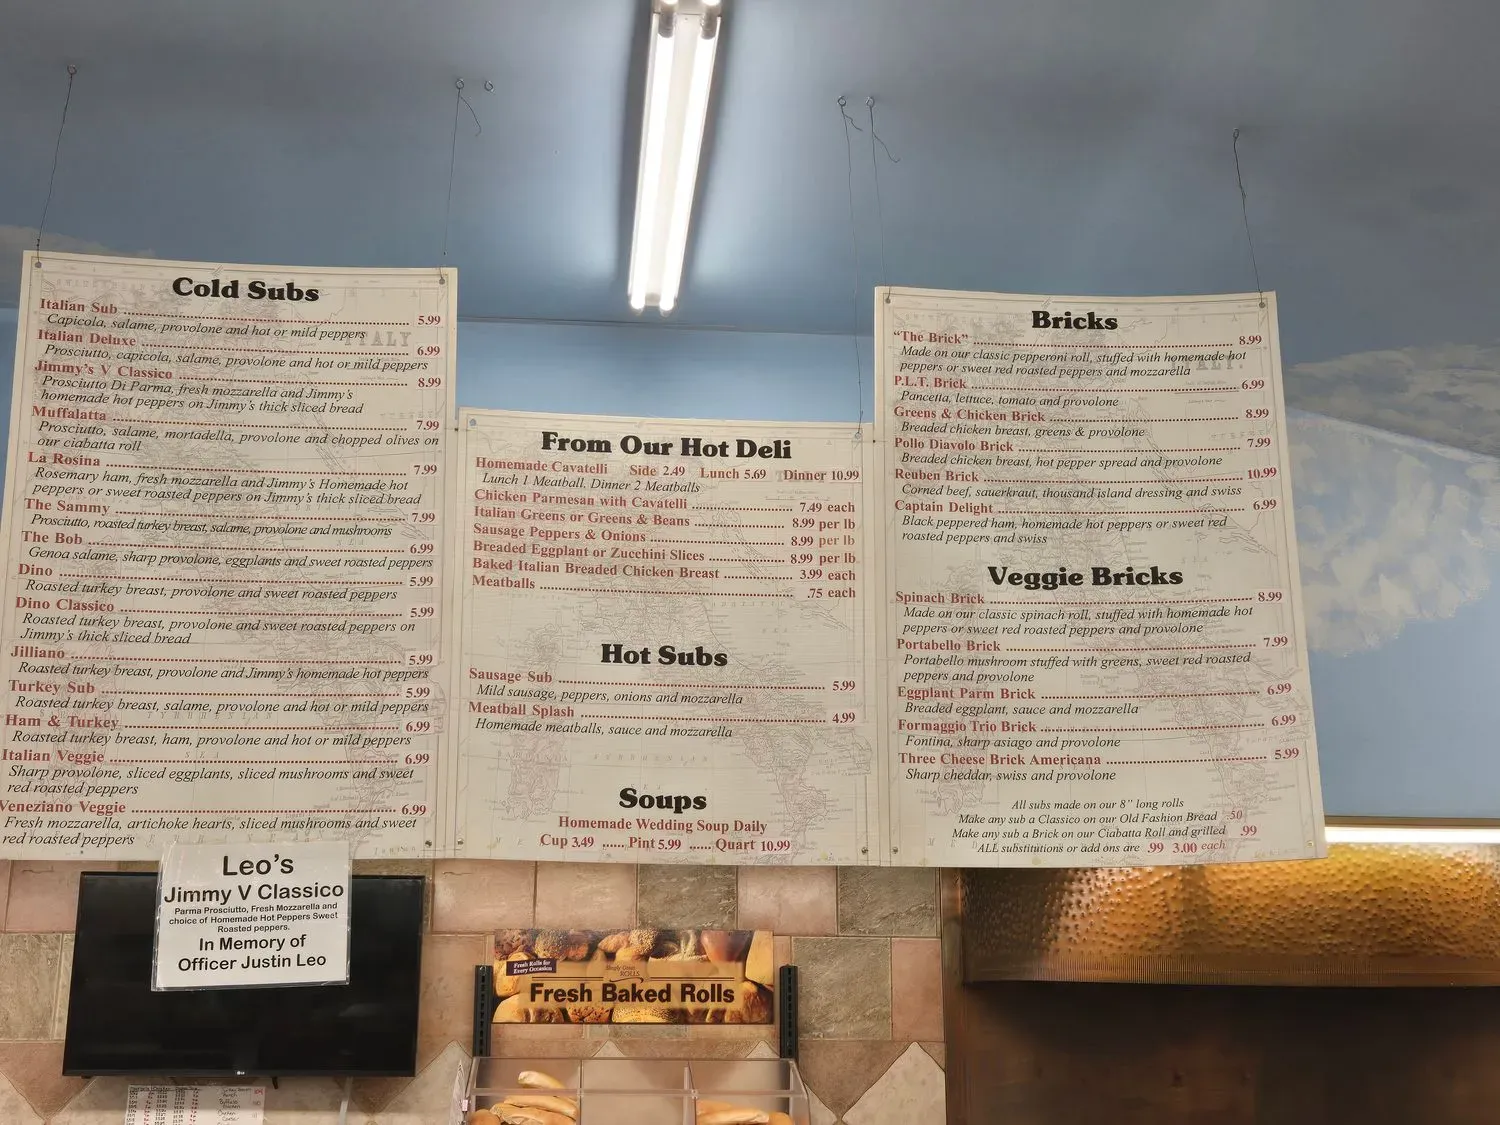 Cold Subs
Italian Sub 5.99
Capicola, salame, provolone and hot or mild peppers
Italian Deluxe 6.99
Prosciutto, capicola, salame, provolone and hot or mild peppers
Jimmy's V Classico 8.99
Prosciutto Di Parma, fresh mozzarella and Jimmy's
homemade hot peppers on Jimmy's thick sliced bread
Muffalatta 7.99
Prosciutto, salame, mortadella, provolone and chopped olives on
our ciabatta roll
La Rosina 7.99
Rosemary ham, fresh mozzarella and Jimmy's Homemade hot
peppers or sweet roasted peppers on Jimmy's thick sliced bread
The Sammy 7.99
Prosciutto, roasted turkey breast, salame, provolone and mushrooms
The Bob 6.99
Genoa salame, sharp provolone, eggplants and sweet roasted peppers
Dino 5.99
Roasted turkey breast, provolone and sweet roasted peppers
Dino Classico 5.99
Roasted turkey breast, provolone and sweet roasted peppers on
Jimmy's thick sliced bread
Jilliano 5.99
Roasted turkey breast, provolone and Jimmy's homemade hot peppers
Turkey Sub 5.99
Roasted turkey breast, salame, provolone and hot or mild peppers
Ham & Turkey 6.99
Roasted turkey breast, ham, provolone and hot or mild peppers
Italian Veggie 6.99
Sharp provolone, sliced eggplants, sliced mushrooms and sweet
red roasted peppers
Veneziano Veggie 6.99
Fresh mozzarella, artichoke hearts, sliced mushrooms and sweet
red roasted peppers
From Our Hot Deli
Homemade Cavatelli Side 2.49 Lunch 5.69 Dinner 10.99
Lunch 1 Meatball, Dinner 2 Meatballs
Chicken Parmesan with Cavatelli 7.49 each
Italian Greens or Greens & Beans 8.99 per lb
Sausage Peppers & Onions 8.99 per lb
Breaded Eggplant or Zucchini Slices 8.99 per lb
Baked Italian Breaded Chicken Breast 3.99 each
Meatballs .75 each
Hot Subs
Sausage Sub 5.99
Mild sausage, peppers, onions and mozzarella
Meatball Splash 4.99
Homemade meatballs, sauce and mozzarella
Soups
Homemade Wedding Soup Daily
Cup 3.49 ...... Pint 5.99 ...... Quart 10.99
Bricks
"The Brick" 8.99
Made on our classic pepperoni roll, stuffed with homemade hot
peppers or sweet red roasted peppers and mozzarella
P.L.T. Brick 6.99
Pancetta, lettuce, tomato and provolone
Greens & Chicken Brick 8.99
Breaded chicken breast, greens & provolone
Pollo Diavolo Brick 7.99
Breaded chicken breast, hot pepper spread and provolone
Reuben Brick 10.99
Corned beef, sauerkraut, thousand island dressing and swiss
Captain Delight 6.99
Black peppered ham, homemade hot peppers or sweet red
roasted peppers and swiss
Veggie Bricks
Spinach Brick 8.99
Made on our classic spinach roll, stuffed with homemade hot
peppers or sweet red roasted peppers and provolone
Portabello Brick 7.99
Portabello mushroom stuffed with greens, sweet red roasted
peppers and provolone
Eggplant Parm Brick 6.99
Breaded eggplant, sauce and mozzarella
Formaggio Trio Brick 6.99
Fontina, sharp asiago and provolone
Three Cheese Brick Americana 5.99
Sharp cheddar, swiss and provolone
All subs made on our 8" long rolls
Make any sub a Classico on our Old Fashion Bread .50
Make any sub a Brick on our Ciabatta Roll and grilled .99
ALL substitutions or add ons are .99 3.00 each
Leo's
Jimmy V Classico
Parma Prosciutto, Fresh Mozzarella and
choice of Homemade Hot Peppers Sweet
Roasted peppers.
In Memory of
Officer Justin Leo
Fresh Rolls for
Every Occasion
ROLLS
Fresh Baked Rolls
LG